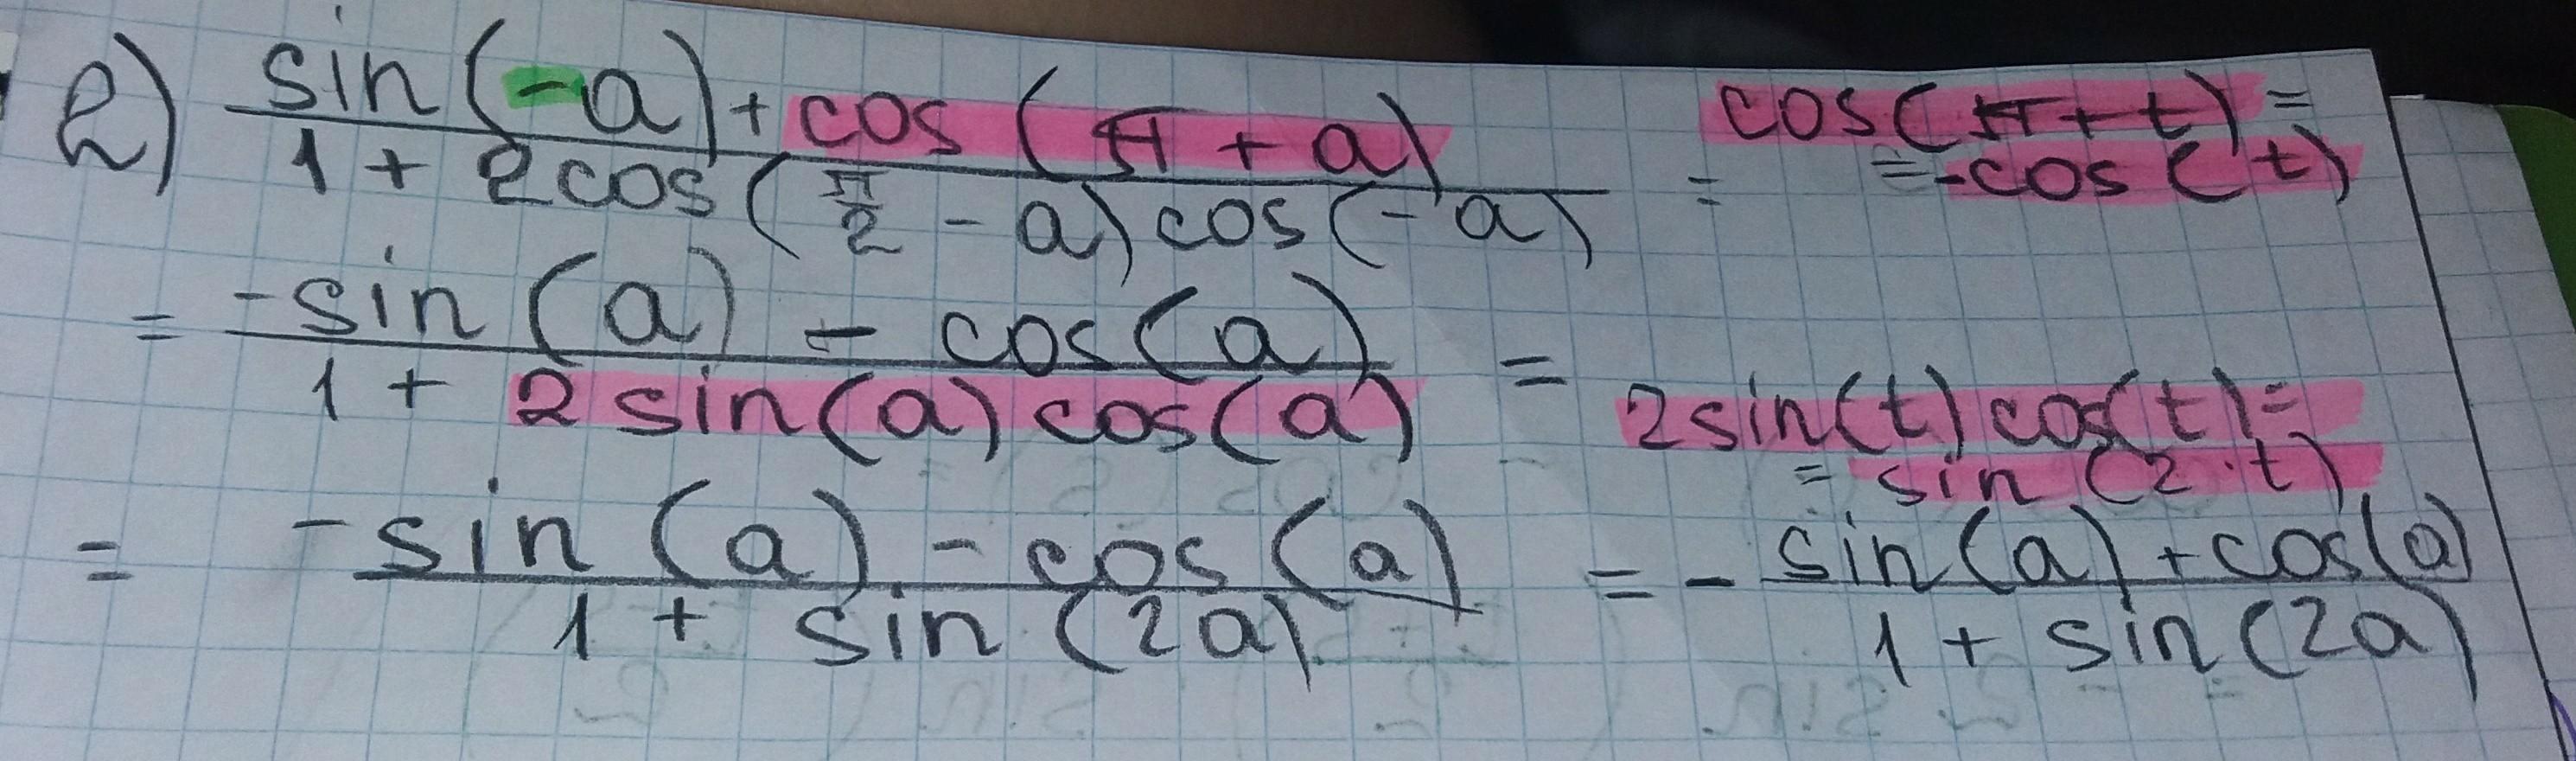 2) sin(-a)+cos(π+a)
1+2cos(π/2-a)cos(-a) =
cos(π+t)=
=-cos(t)
= -sin(a) - cos(a)
1+2sin(a)cos(a) =
2sin(t)cos(t)=
=sin(2·t)
= -sin(a)-cos(a)
1+sin(2a)
= - sin(a)+cos(a)
1+sin(2a)